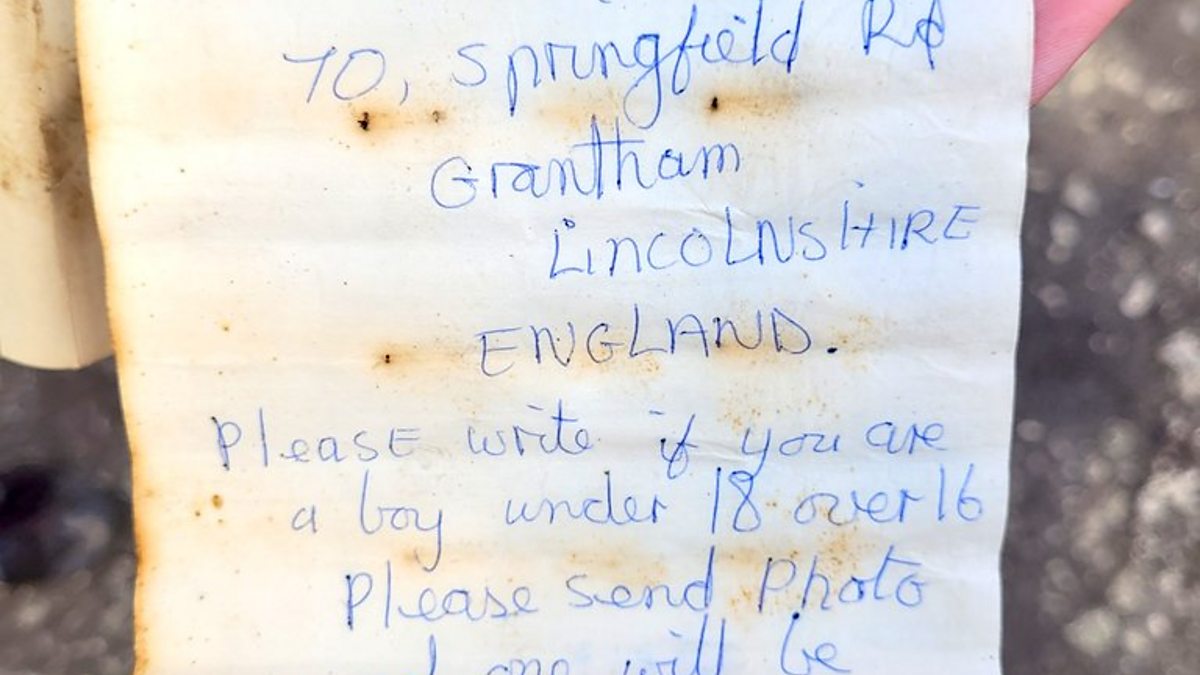 70, Springfield Rd
Grantham
LINCOLNSHIRE
ENGLAND.
PleasE write if you are
a boy under 18 over 16
Please send Photo
one will be